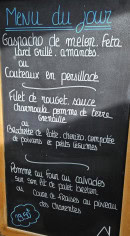 Menu du jour
Gaspacho de melon, Feta
lard Grillé, amandes
ou
Couteaux en persillade
Filet de rouget, sauce
chermoula, pomme de terre
Grenaille
ou
de lotte, chorizo, compotée
de poivrons et petits légumes
Pomme au four au calvados
sur son lit de palet breton
ou
de Fraises au poivron
des Charentes